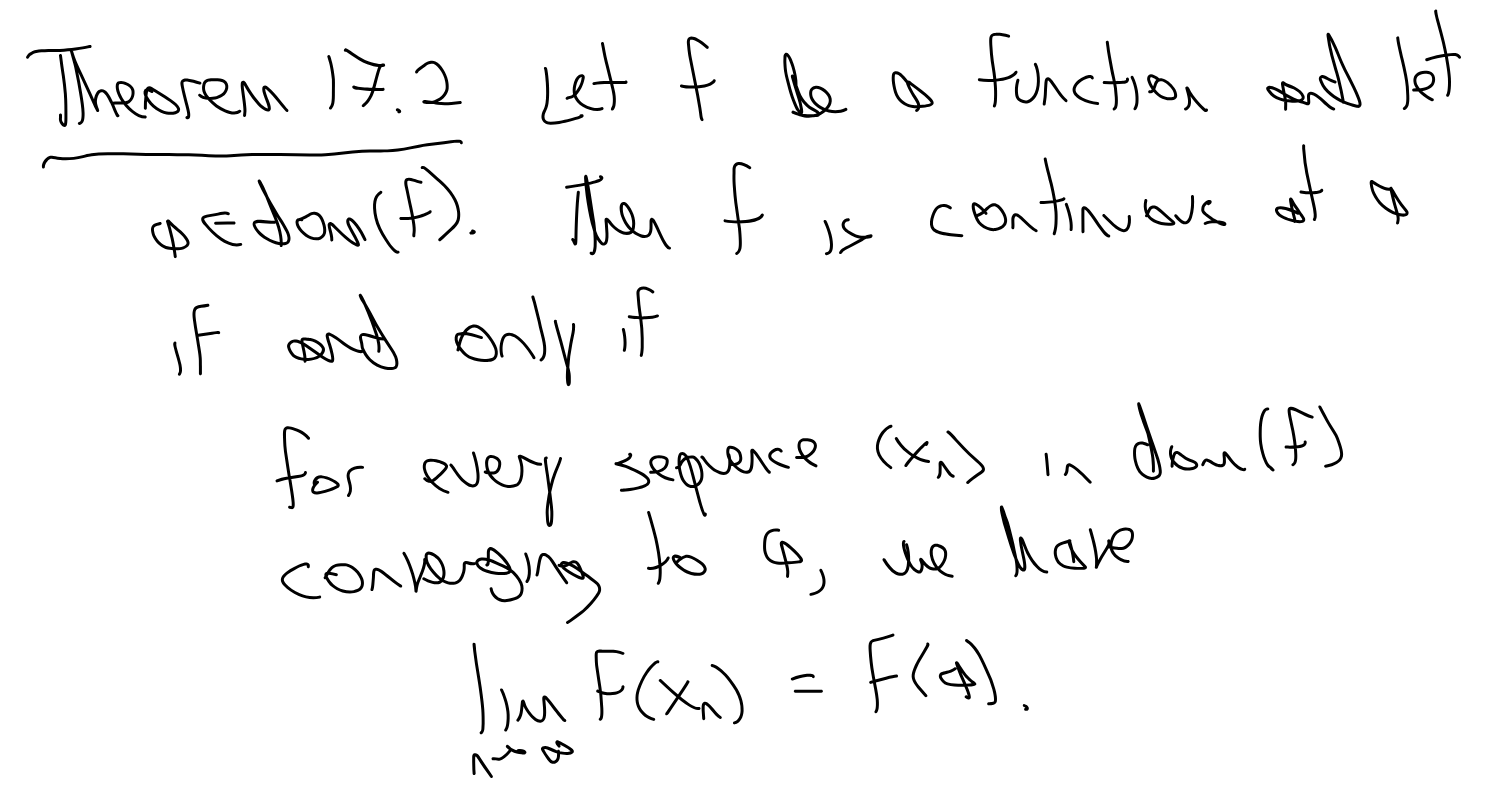 Theorem 17.2 Let f be a function and let
a ∈ dom(f). Then f is continuous at a
if and only if
for every sequence (xₙ) in dom(f)
converging to a, we have
lim f(xₙ) = f(a).
n→∞